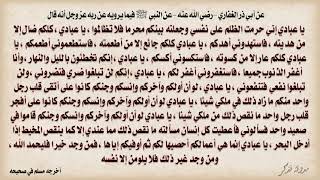 عن أبي ذر الغفاري - رضي الله عنه - عن النبي ﷺ فيما يرويه عن ربه عز وجل أنه قال
يا عبادي إني حرمت الظلم على نفسي وجعلته بينكم محرما فلا تظالموا ، يا عبادي ، كلكم ضال إلا
من هديته ، فاستهدوني أهدكم ، يا عبادي كلكم جائع إلا من أطعمته ، فاستطعموني أطعمكم ، يا
عبادي كلكم عار إلا من كسوته ، فاستكسوني أكسكم ، يا عبادي ، إنكم تخطئون بالليل والنهار ، وأنا
أغفر الذنوب جميعا ، فاستغفروني أغفر لكم ، يا عبادي ، إنكم لن تبلغوا ضري فتضروني ، ولن
تبلغوا نفعي فتنفعوني ، يا عبادي لو أن أولكم وآخركم وإنسكم وجنكم كانوا على أتقى قلب رجل
واحد منكم ما زاد ذلك في ملكي شيئا ، يا عبادي لو أن أولكم وآخركم وإنسكم وجنكم كانوا على أفجر
قلب رجل واحد ما نقص ذلك من ملكي شيئا ، يا عبادي لو أن أولكم وآخركم وإنسكم وجنكم قاموا في
صعيد واحد فسألوني فأعطيت كل إنسان مسألته ما نقص ذلك مما عندي إلا كما ينقص المخيط إذا
أدخل البحر ، يا عبادي إنما هي أعمالكم أحصيها لكم ثم أوفيكم إياها ، فمن وجد خيرا فليحمد الله ،
ومن وجد غير ذلك فلا يلومن إلا نفسه
أخرجه مسلم في صحيحه